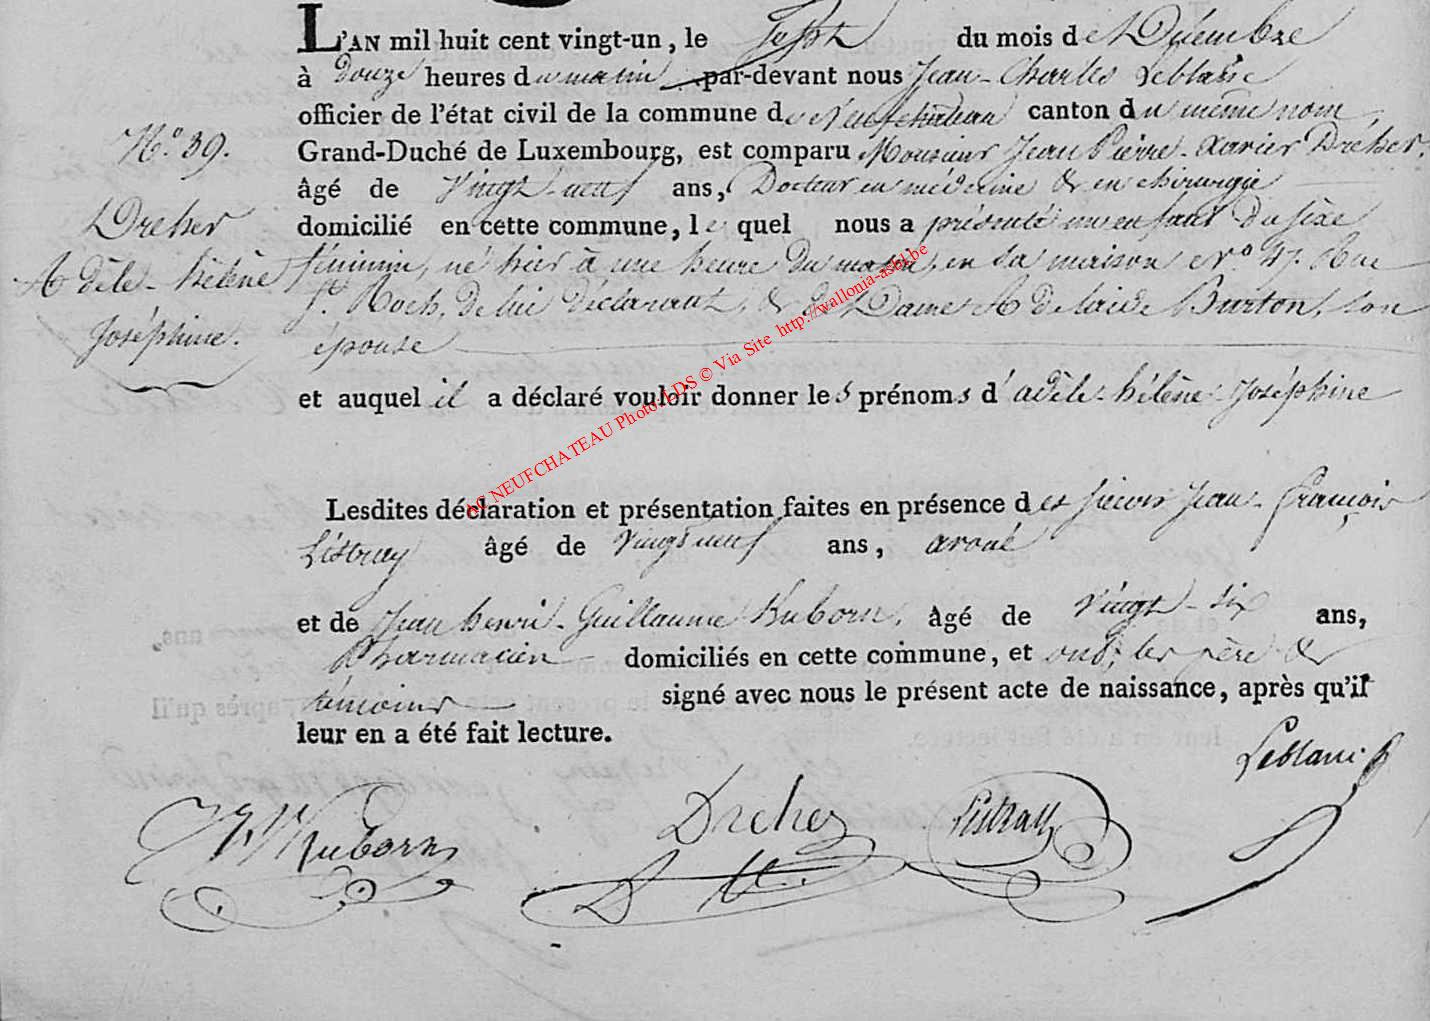 L'AN mil huit cent vingt-un, le Sept du mois de Décembre
à douze heures du matin par-devant nous Jean-Charles Leblanc
officier de l'état civil de la commune de Neufchateau canton du même nom,
N.° 39.
Grand-Duché de Luxembourg, est comparu Monsieur Jean Pierre-Xavier Dreher,
âgé de vingt-neuf ans, Docteur en médecine & en chirurgie
Dreher
Adèle-hélène
Joséphine.
domicilié en cette commune, lequel nous a présenté un enfant du sèxe
féminin, né hier à une heure du matin, en sa maison N.° 47. Rue
St. Roch, de lui déclarant, & de Dame Adelaide Burton, son
épouse
et auquel il a déclaré vouloir donner les prénoms d'adèle-hélène-Joséphine
AC NEUFCHATEAU Photo LDS © Via Site http://wallonia-asbl.be
Lesdites déclaration et présentation faites en présence des sieurs Jean-François
âgé de vingt neuf ans, avoué
et de Jean henri-Guillaume Kuborn, âgé de vingt-six ans,
Pharmacien domiciliés en cette commune, et ont, les père &
témoins signé avec nous le présent acte de naissance, après qu'il
leur en a été fait lecture.
Leblanc
Kuborn
Dreher